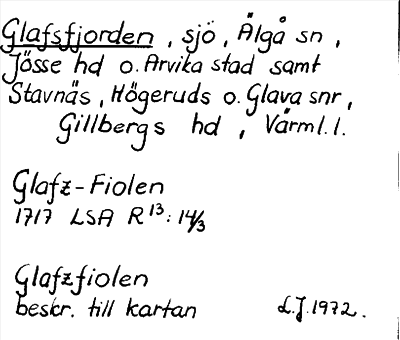 Glafsfjorden, sjö, Älgå sn,
Jösse hd o. Arvika stad samt
Stavnäs, Högeruds o. Glava snr,
Gillbergs hd, Värml. l.
Glafz-Fiolen
1717 LSA R13: 14/3
Glafzfiolen
beskr. till kartan L.J. 1972.